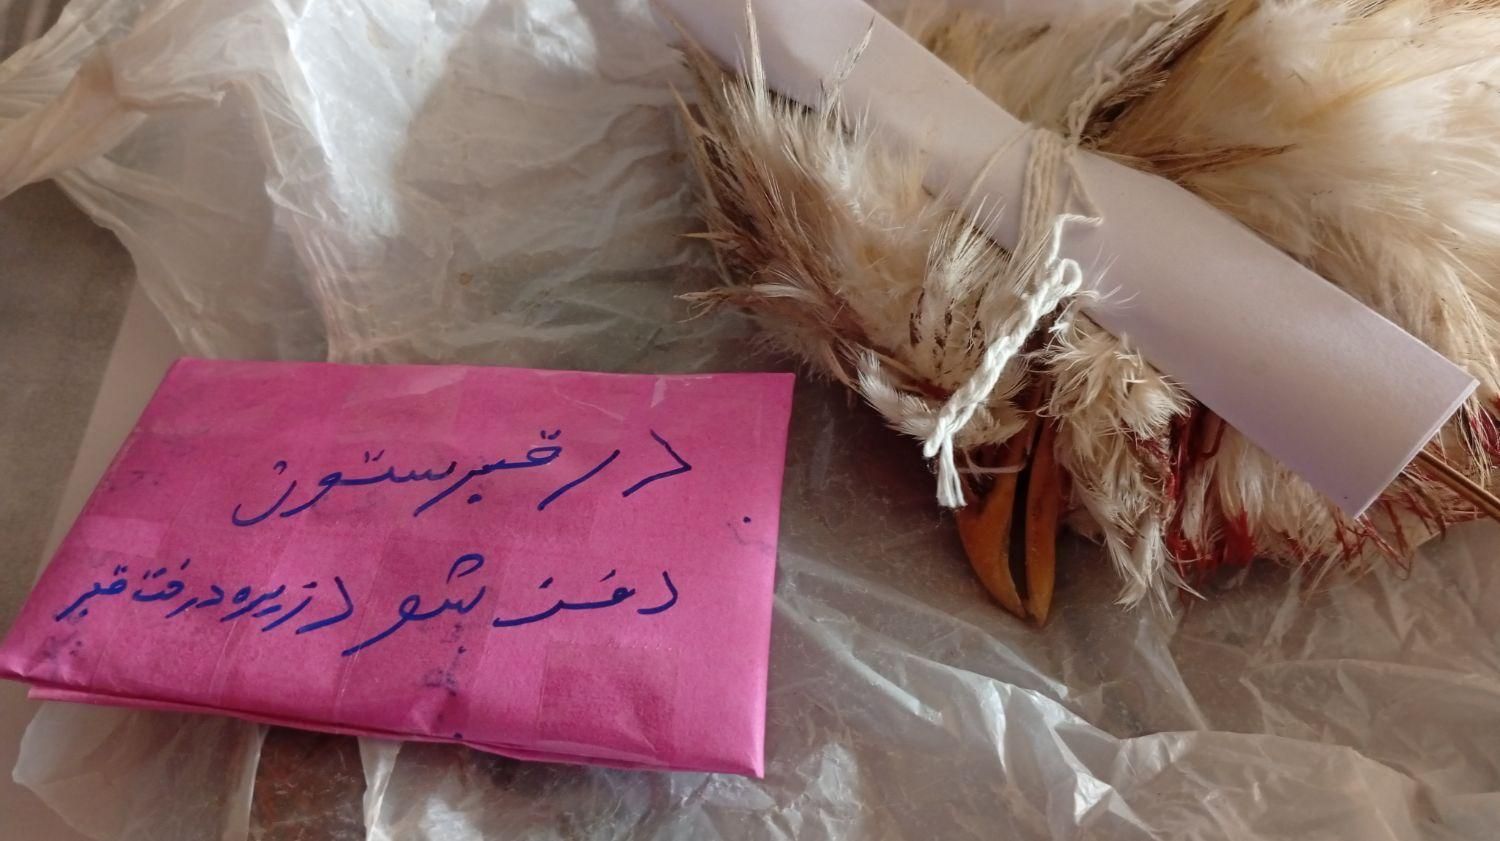 در قبرستون
دفن بشو در زیره درخت قبر